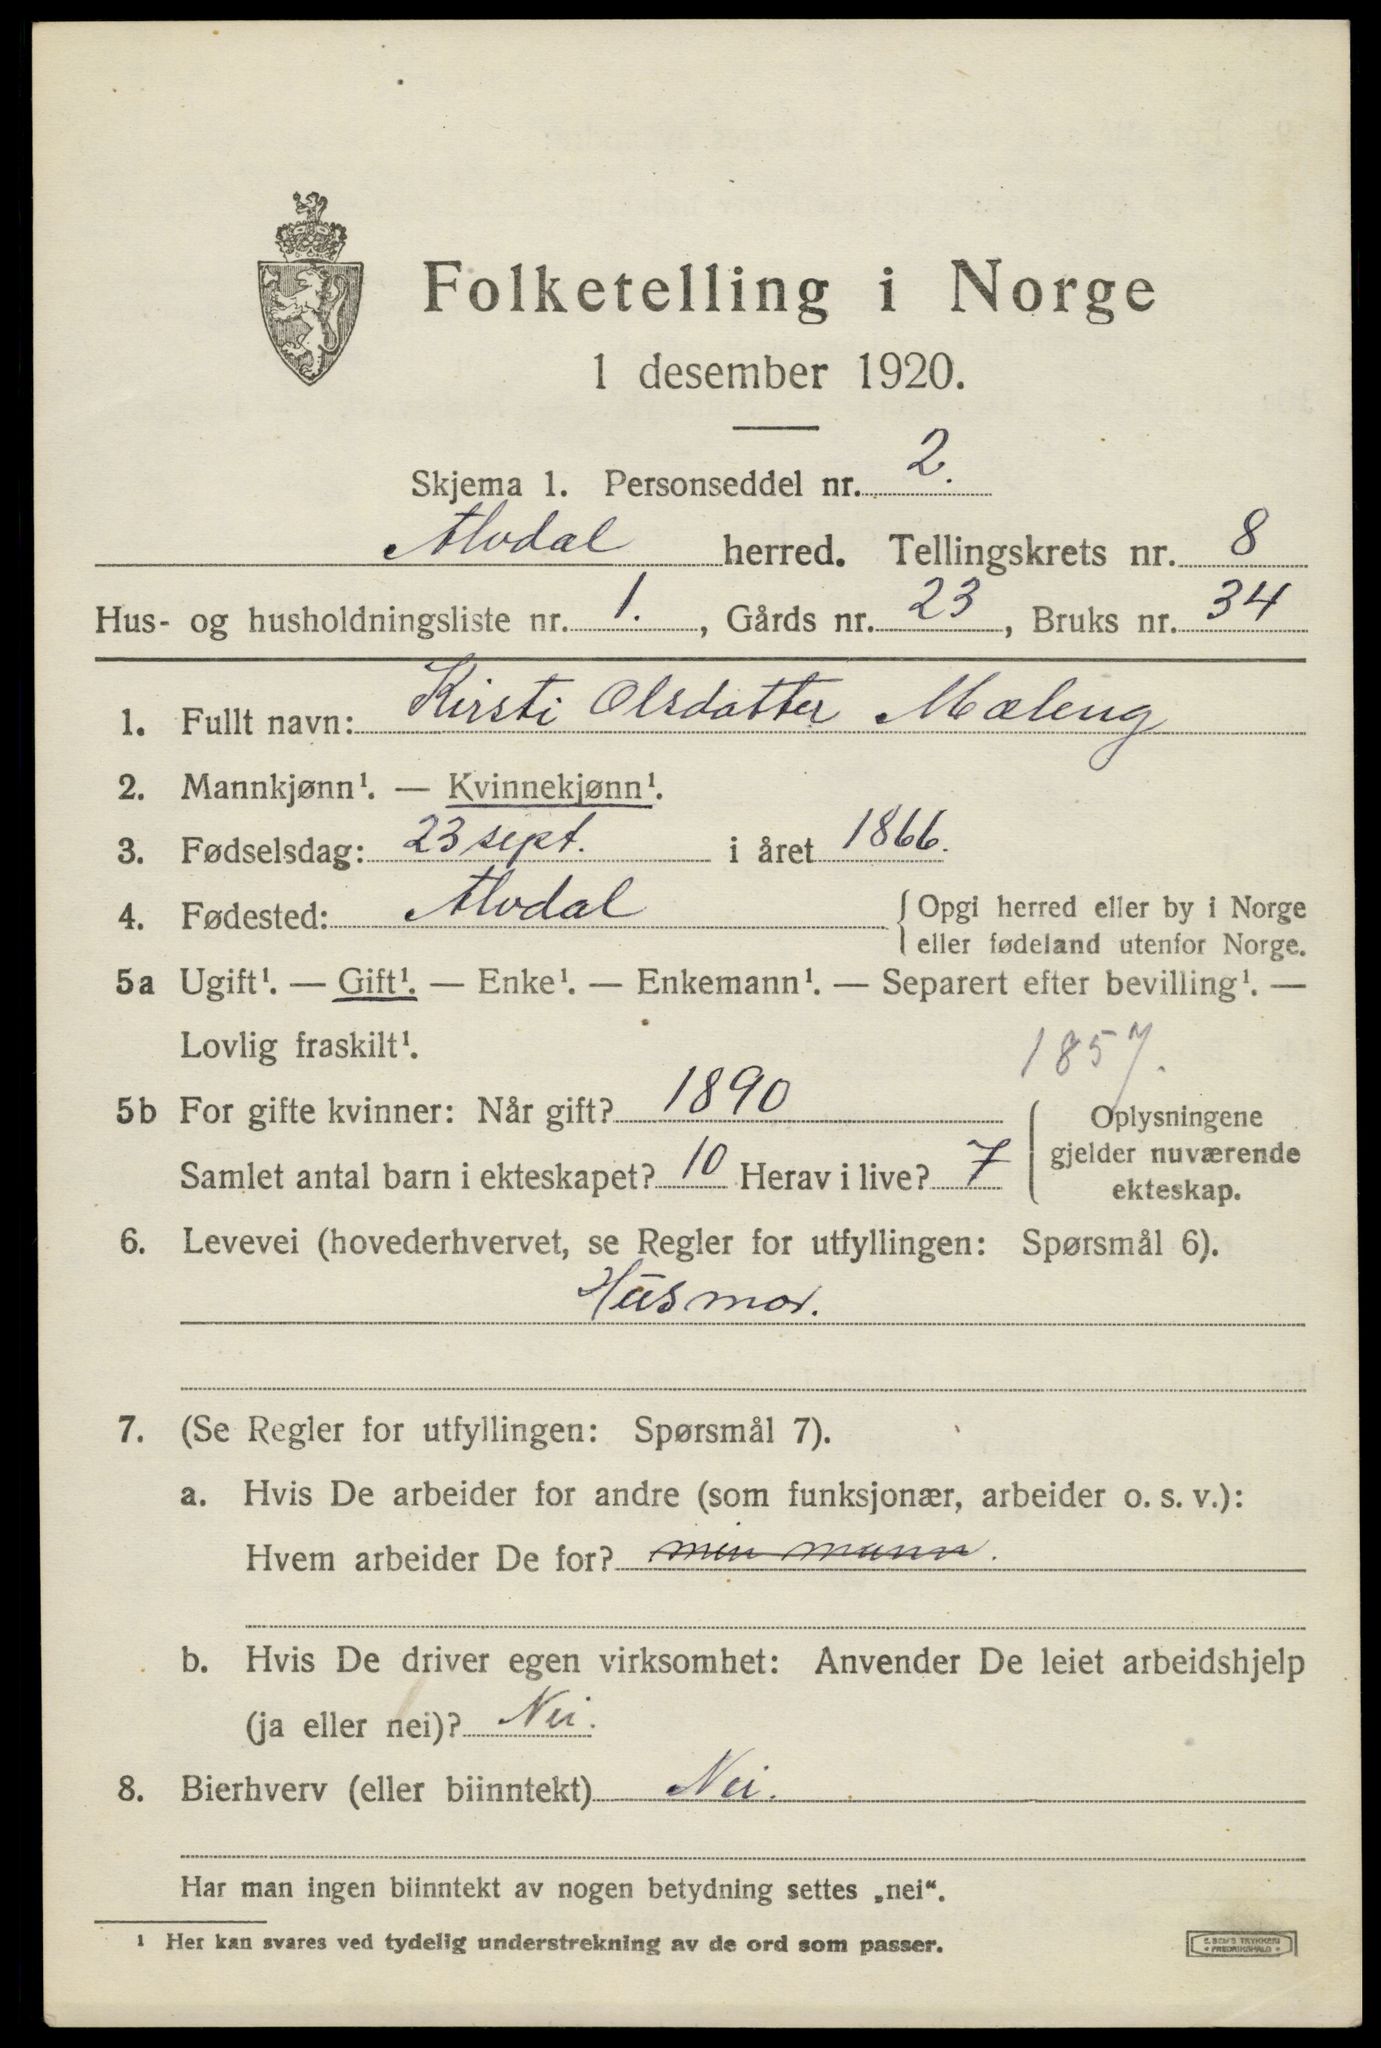 Folketelling i Norge
1 desember 1920.
Skjema 1. Personseddel nr. 2.
Alvdal herred. Tellingskrets nr. 8
Hus- og husholdningsliste nr. 1., Gårds nr. 23, Bruks nr. 34
1. Fullt navn: Kirsti Olsdatter Mæleng
2. Mannkjønn¹. — Kvinnekjønn¹.
3. Fødselsdag: 23 sept. i året 1866.
4. Fødested: Alvdal { Opgi herred eller by i Norge
eller fødeland utenfor Norge.
5a Ugift¹. — Gift¹. — Enke¹. — Enkemann¹. — Separert efter bevilling¹. —
Lovlig fraskilt¹.
1857.
5b For gifte kvinner: Når gift? 1890
Samlet antal barn i ekteskapet? 10 Herav i live? 7
Oplysningene
gjelder nuværende
ekteskap.
6. Levevei (hovederhvervet, se Regler for utfyllingen: Spørsmål 6).
Husmor.
7. (Se Regler for utfyllingen: Spørsmål 7).
a. Hvis De arbeider for andre (som funksjonær, arbeider o. s. v.):
Hvem arbeider De for? min mann.
b. Hvis De driver egen virksomhet: Anvender De leiet arbeidshjelp
(ja eller nei)? Nei.
8. Bierhverv (eller biinntekt) Nei.
Har man ingen biinntekt av nogen betydning settes „nei“.
¹ Her kan svares ved tydelig understrekning av de ord som passer.
E. SEM'S TRYKKERI
• FREDRIKSHALD •